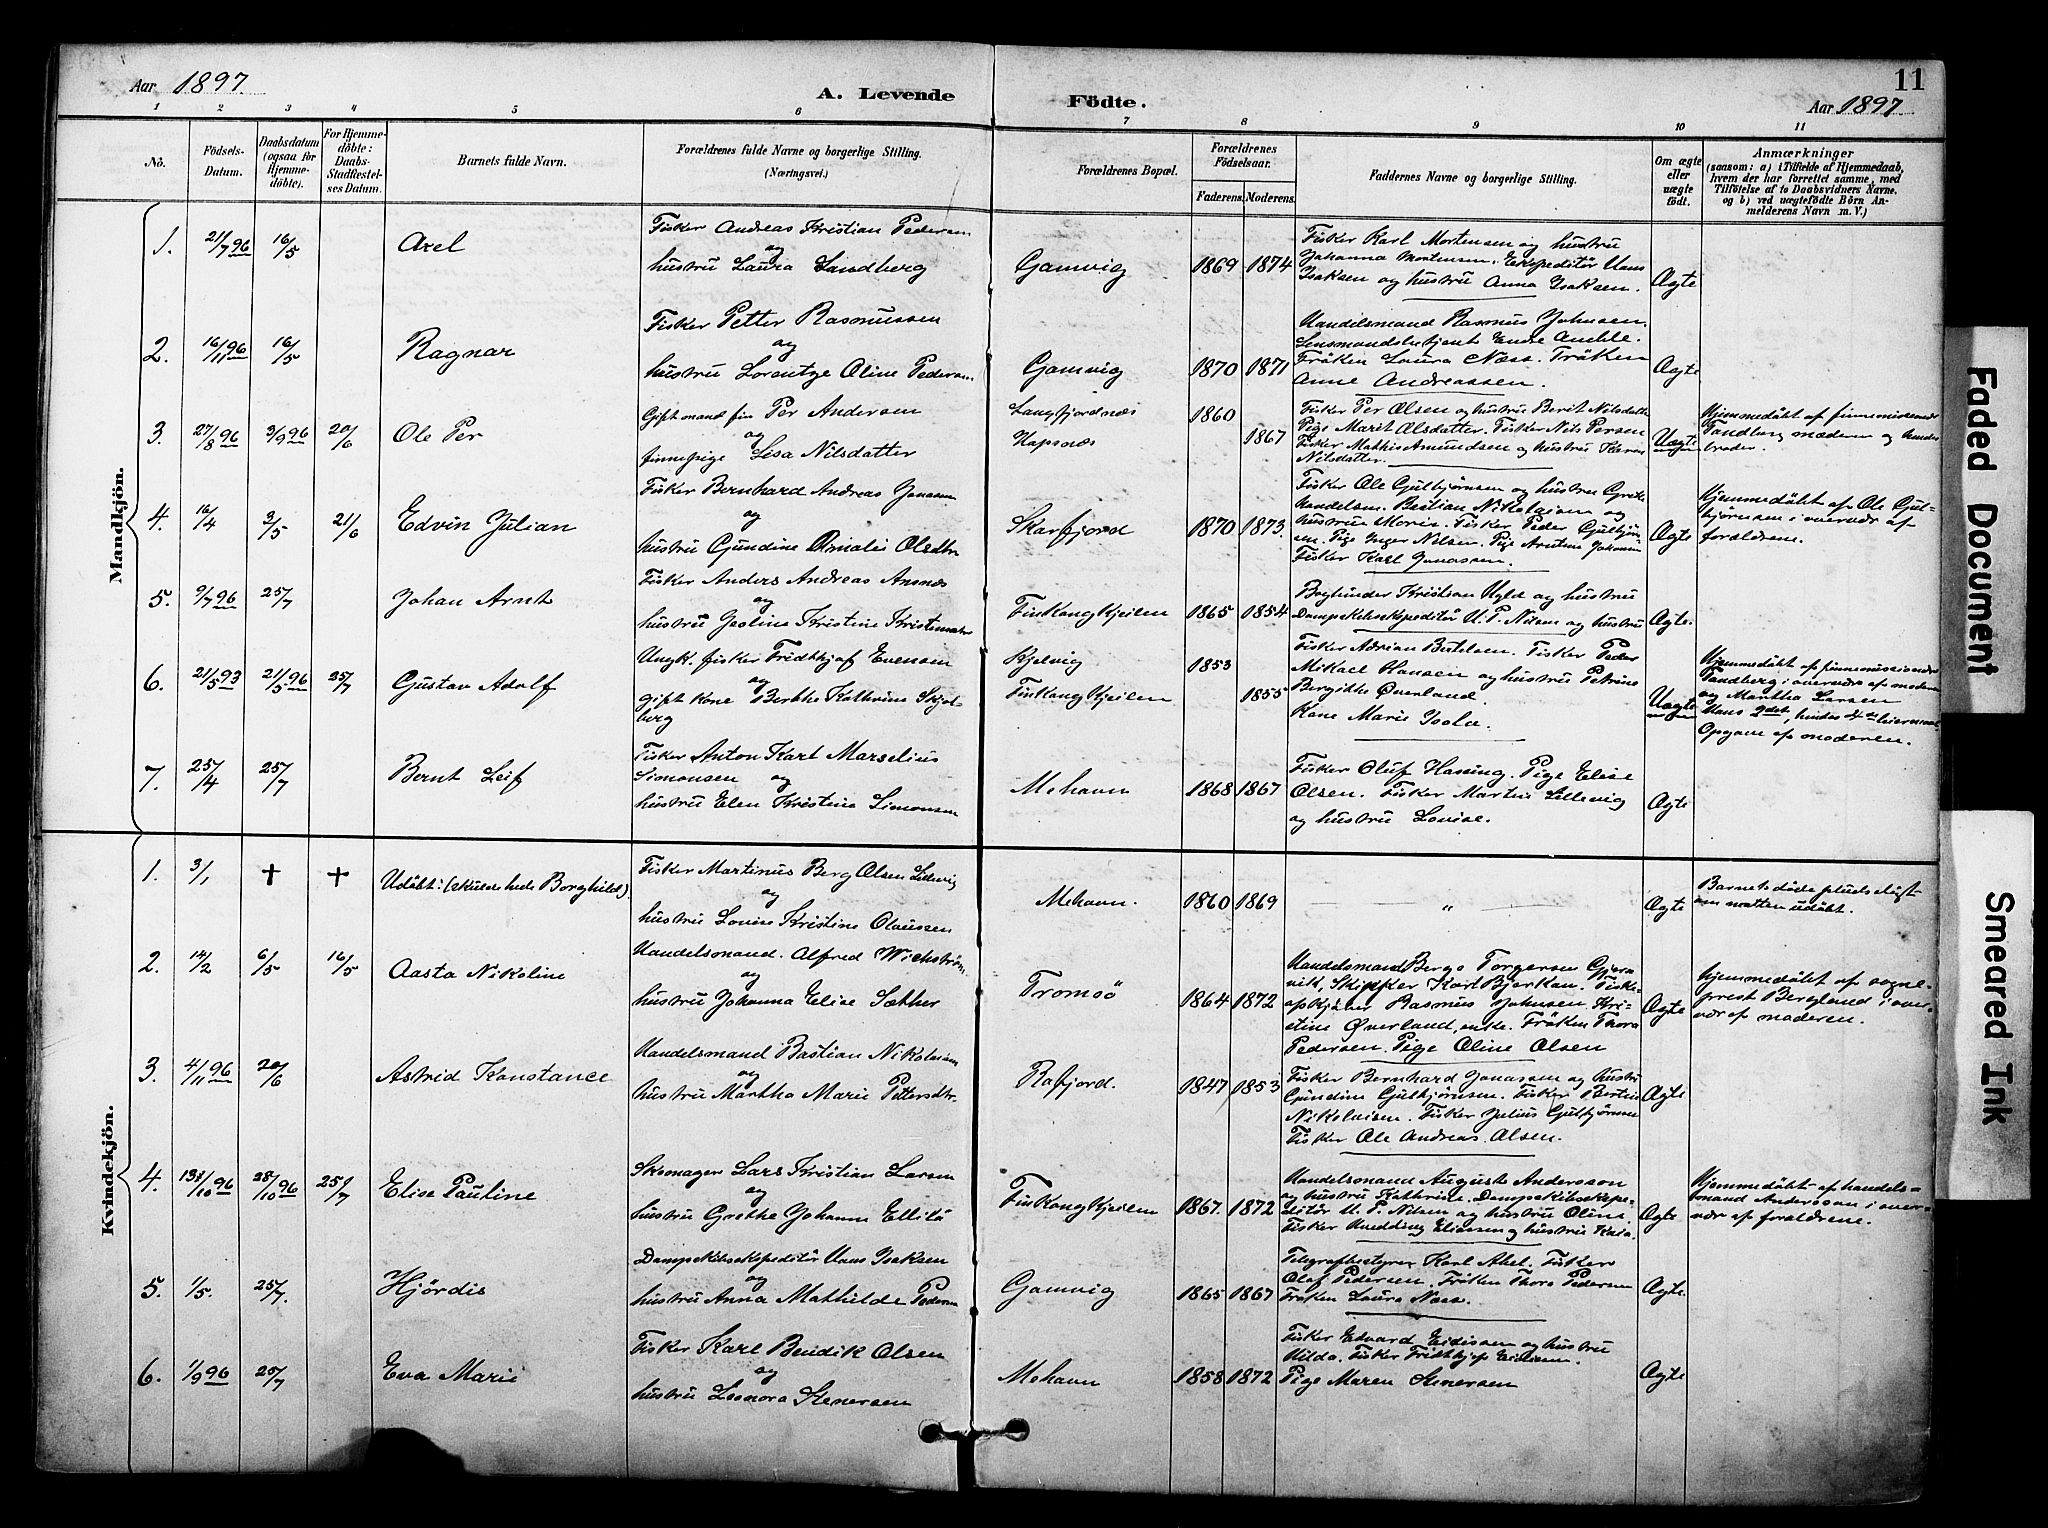 Aar 1897.
A. Levende Födte.
11
Aar 1897
1 2 3 4 5 6 7 8 9 10 11
No.
Födsels-Datum.
Daabsdatum (ogsaa for Hjemme-döbte).
For Hjemme-döbte: Daabs-Stadfæstel-ses Datum.
Barnets fulde Navn.
Forældrenes fulde Navne og borgerlige Stilling. (Næringsvei.)
Forældrenes Bopæl.
Forældrenes Födselsaar.
Faderens. Moderens.
Faddernes Navne og borgerlige Stilling.
Om ægte eller uægte födt.
Anmærkninger
(saasom: a) i Tilfælde af Hjemmedaab, hvem der har forrettet samme, med Tilföielse af to Daabsvidners Navne, og b) ved uægtefödte Börn Anmelderens Navn m. V.)
Mandkjön.
1. 21/7 96 16/5 Axel
Fisker Andreas Kristian Pedersen
og
hustru Laura Lindberg
Gamvig 1869 1874
Fisker Karl Mortensen og hustru
Johanna Mortensen. Ekspeditör Hans
Isaksen og hustru Anna Isaksen.
Ægte
2. 16/11 96 16/5 Ragnar
Fisker Petter Rasmussen
og
hustru Lorentze Oline Pedersen
Gamvig 1870 1871
Handelsmand Rasmus Johnsen.
Fröken Laura Næss. Fröken
Anne Andreassen.
Ægte
3. 27/8 96 3/9 96 20/6 Ole Per
Gift mand fin Per Andersen
og
finnepige Lisa Nilsdatter
Langfjordnæs
Hopsnæs
1860
1867
Fisker Per Olsen og hustru Berit Nilsdatter
Pige Marit Olsdatter. Fisker Nils Persen
Fisker Mathis Amundsen og hustru Karen
Nilsdatter.
Uægte
Hjemmedöbt af finnemissionær
Tandberg moderen og hendes
broder.
4. 16/4 3/5 21/6 Edvin Julian
Fisker Bernhard Andreas Jonassen
og
hustru Gjundine Amalie Olsdtr.
Skarfjord 1870 1873.
Fisker Ole Gulbjörnsen og hustru Grete
Handelsm. Bastian Nikolaisen og
hustru Marie. Fisker Peder Gulbjörn-
sen. Pige Inger Nilsen. Pige
Fisker Karl Jonassen.
Ægte
Hjemmedöbt af Ole Gul-
björnsen i overvær af
forældrene.
5. 9/7 96 25/7 Johan Arnt
Fisker Anders Andreas Arsnæs
og
hustru Joline Kristine
Finkongkjeilen 1865 1854
Bogbinder Kristian Hyld og hustru
Dampskibsekspeditör H. P. Nilsen og hustru
Ægte.
6. 21/5 93 21/5 96 25/7 Gustav Adolf
Ungk. fisker Fridthjof Evensen
og
gift kone Berthe Kathrine Skjol-
berg
Kjelvig
Finkongkjeilen
1853
1855
Fisker Adrian Bertelsen. Fisker Peder
Mikael Hansen og hustru Petrine
Bergithe Överland.
Kone Marie Isola.
Uægte
Hjemmedöbt af finnemissionær
Tandberg i overvær af moderen
og Martha Larsen
Hans 2det, hendes 4de leiermaal.
Opgave af moderen.
7. 25/4 25/7 Bernt Leif
Fisker Anton Karl Marselius
Simonsen og
hustru Elen Kristine Simonsen
Mehavn 1868 1867
Fisker Oluf Hassing. Pige Elise
Olsen. Fisker Martin Lillevig
og hustru Lovise.
Ægte
Kvindekjön.
1. 3/1 + + Udöbt: (skulde hede Borghild).
Fisker Martinus Berg Olsen Lillevig
og
hustru Lovise Kristine Olaussen
Mehavn. 1860 1869
— " —
Ægte
Barnet döde pludseligt
om natten udöbt.
2. 14/2 6/5 16/5 Aasta Nikoline
Handelsmand. Alfred Wichström
og
hustru Johanna Elise Sæther
Tromsö 1864 1872
Handelsmand Bergs Torgersen Gjæra-
vik, Skipper Karl Bjerken. Fiske-
opkjöber Rasmus Johnsen Kri-
stine Överland, enke. Fröken Thora
Pedersen. Pige Oline Olsen
Ægte
hjemmedöbt af sogne-
prest Bergland i over-
vær af moderen.
3. 4/11 96 20/6 Astrid Konstance
Handelsmand Bastian Nikolaisen
og
hustru Martha Marie Pettersdtr.
Rafjord. 1847 1853
Fisker Bernhard Jonassen og hustru
Gjundine Gulbjörnsen. Fisker Bertin
Nikolaisen. Fisker Julius Gulbjörnsen
Fisker Ole Andreas Olsen.
Ægte
4. 13/10 96 28/10 96 25/7 Elise Pauline
Skomager Lars Kristian Larsen
og
hustru Grethe Johanne Ellila
Finkongkjeilen 1867. 1872
Handelsmand Auguste Andersson
og hustru Kathrine. Dampskibsekspe-
ditör H. P. Nilsen og hustru Oline.
Fisker Hedding Eliassen og hustru Kaia.
Ægte
Hjemmedöbt af handels-
mand Andersson i over-
vær af forældrene.
5. 1/5. 25/7. Hjördis
Dampskibsekspeditör Hans Isaksen
og
hustru Anna Mathilde Pedersen
Gamvig 1865 1867
Telegrafbestyrer Karl Abel. Fisker
Olaf Pedersen. Fröken Thora Pedersen
Fröken Laura Næss.
Ægte.
6. 1/9 96 25/7 Eva Marie
Fisker Karl Bendik Olsen
og
hustru Leonora Stenersen
Mehavn 1858 1872
Fisker Edvard Eidissen og hustru
Hilda. Fisker Fridthjof Eidissen.
Pige Maren Stenersen
Ægte
Faded Document
Smeared Ink